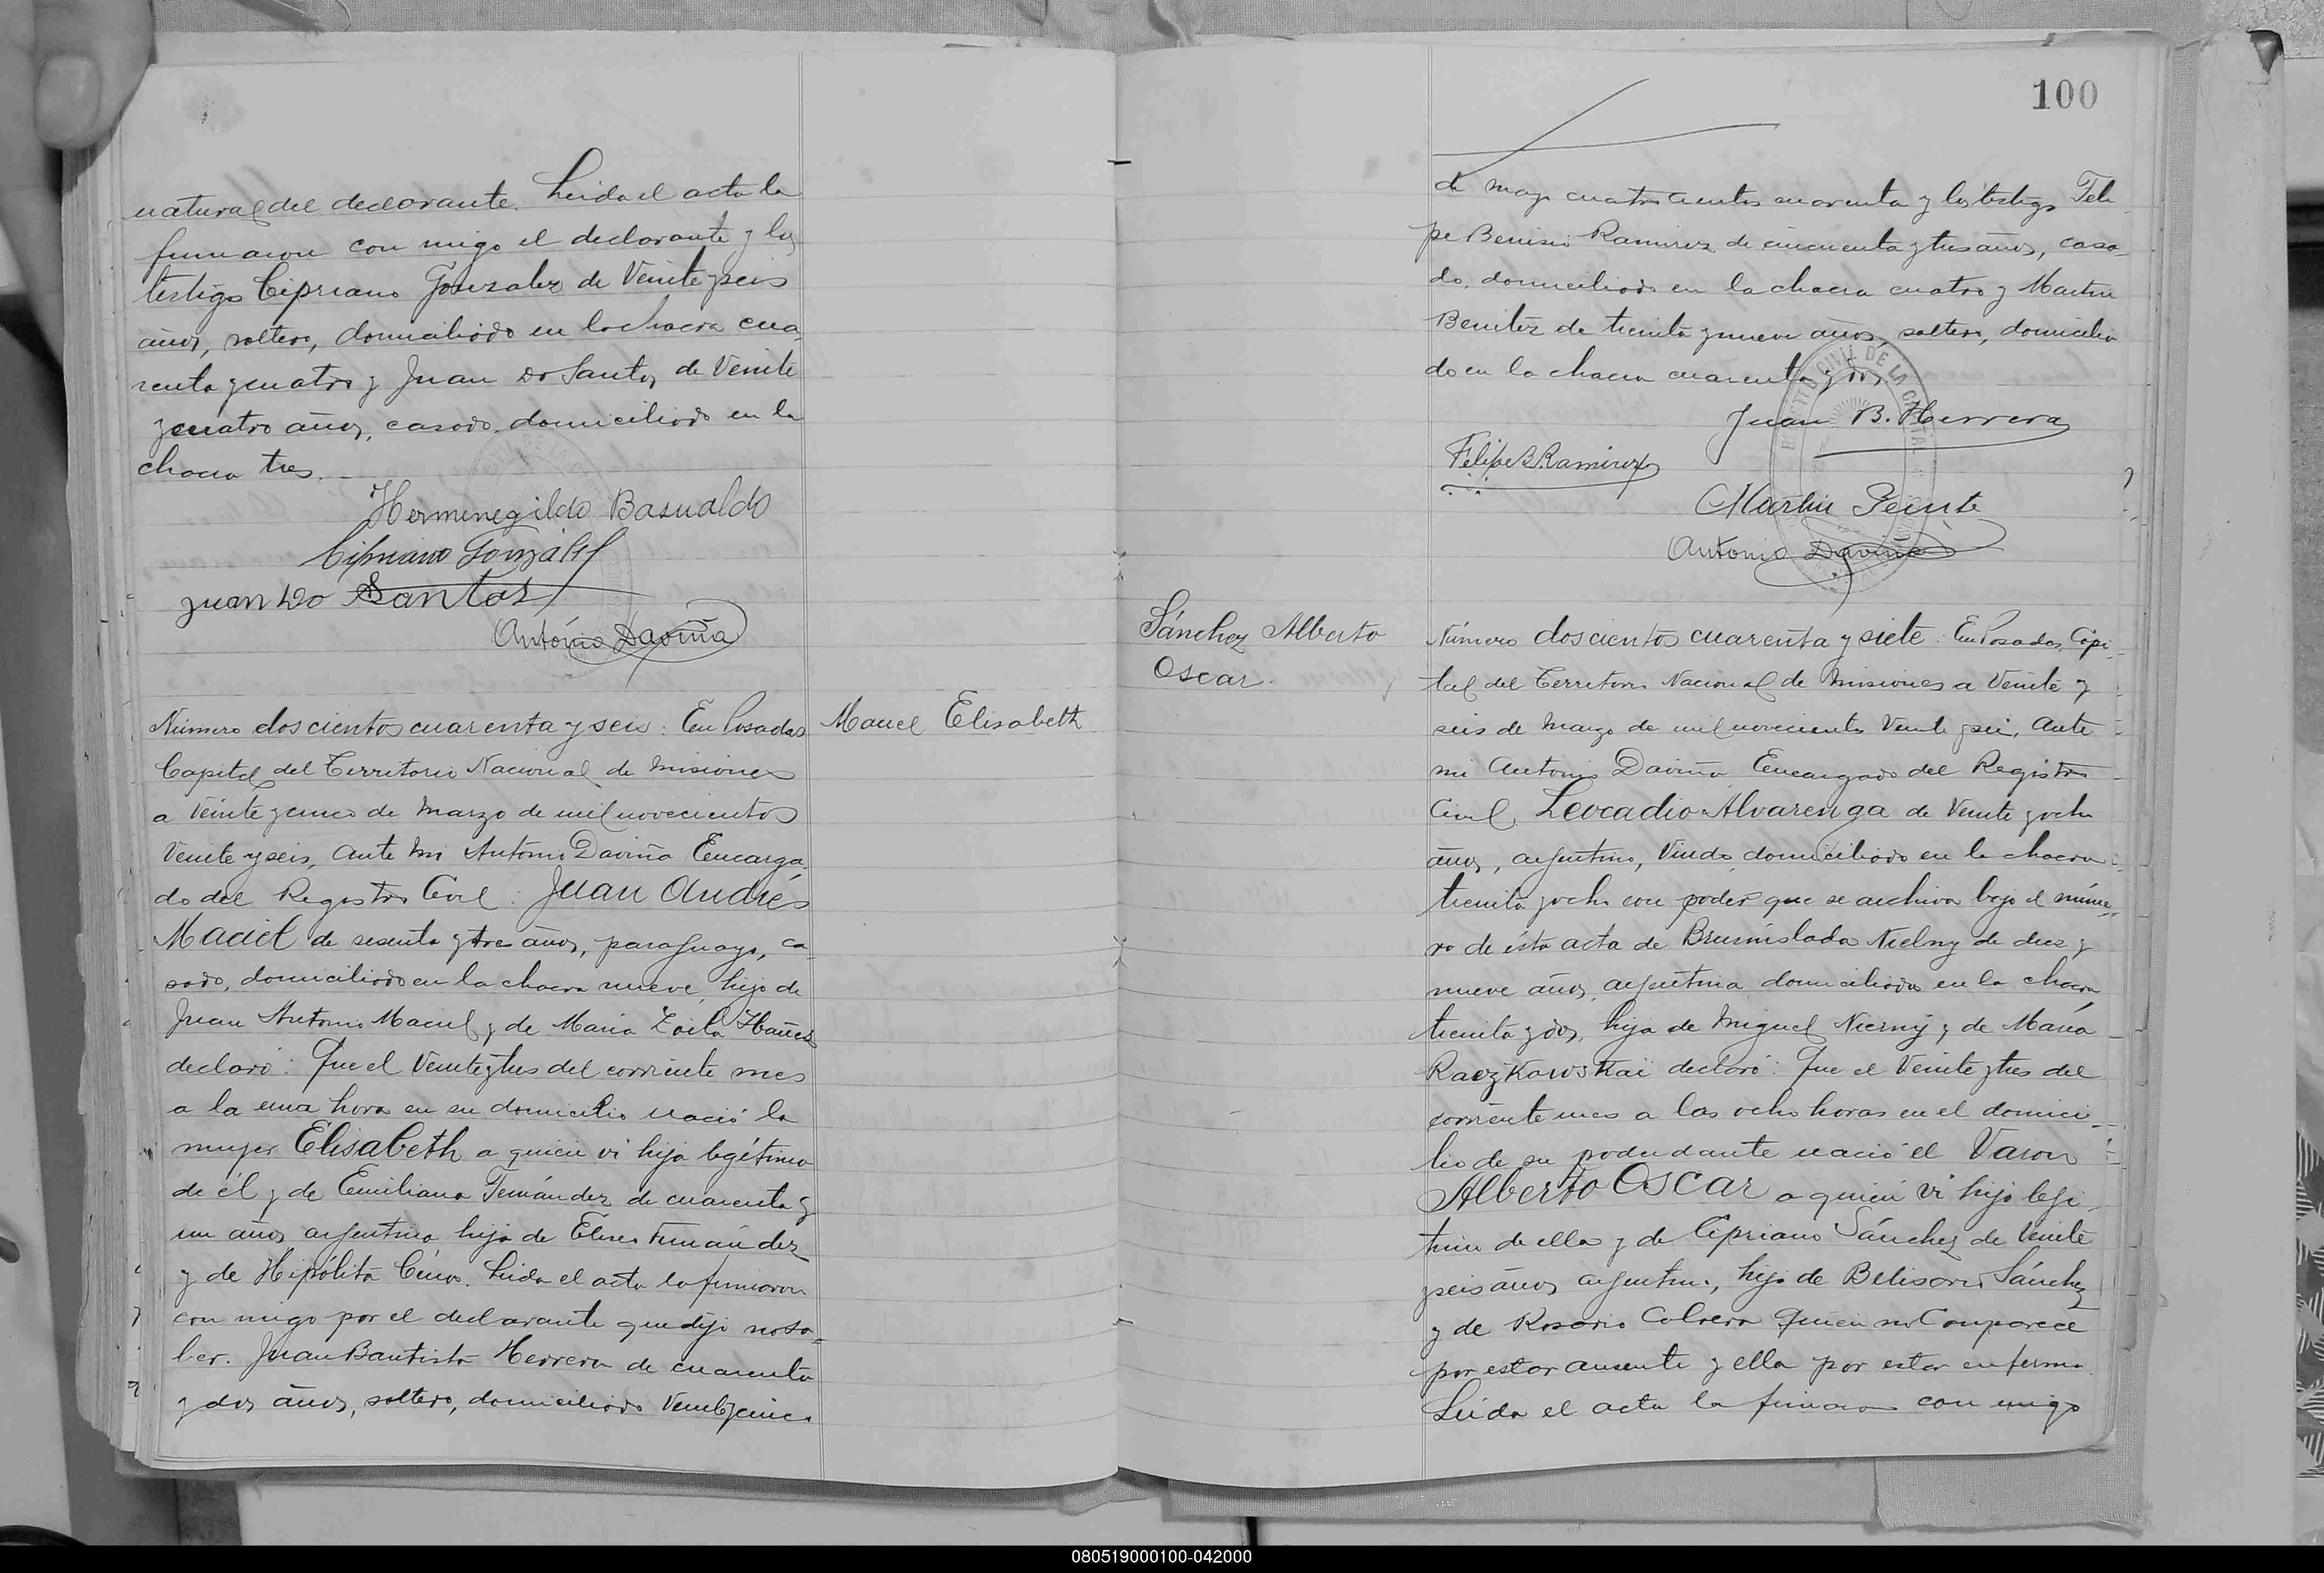 natural del declarante. Leida el acta la
firmaron con migo el declarante y los
testigos Cipriano Gonzalez de Veinte y seis
años, soltero, domiciliado en la chacra cua
renta y cuatro y Juan Do Santos de Veinte
y cuatro años, casado, domiciliado en la
chacra tres.
Hermenegildo Basualdo
Cipriano González
Juan Do Santos
Antonio Daviña
Número doscientos cuarenta y seis: En Posadas
Capital del Territorio Nacional de Misiones
a Veinte y cinco de Marzo de mil novecientos
Veinte y seis, Ante mi Antonio Daviña Encarga
do del Registro Civil: Juan Andrés
Maciel de sesenta y tres años, paraguayo, ca
sado, domiciliado en la chacra nueve, hijo de
Juan Antonio Maciel y de Maria Zoila Ibañez
declaró: Que el Veinte y tres del corriente mes
a la una hora en su domicilio nació la
mujer Elisabeth a quien vi hija legítima
de él y de Emiliana Fernández de cuarenta y
un años argentina hija de Fernández
y de Hipólita. Leida el acta la firmaron
con migo por el declarante que dijo no sa=
ber. Juan Bautista Herrera de cuarenta
y dos años, soltero, domiciliado Veinte y cinco
Maciel Elisabeth
100
de mayo cuatro cientos cuarenta y los testigos Feli
pe Ramirez de cincuenta y tres años, casa
do, domiciliado en la chacra cuatro y Martin
Benitez de treinta y nueve años, soltero, domicilia
do en la chacra cuarenta y dos
Juan B. Herrera
Felipe B. Ramirez
Martin
Antonio Daviña
Sánchez Alberto
Oscar.
Número doscientos cuarenta y siete: En Posadas, Capi
tal del Territorio Nacional de Misiones a Veinte y
seis de Marzo de mil novecientos Veinte y seis, Ante
mi Antonio Daviña Encargado del Registro
Civil, Leocadio Alvarenga de Veinte y ocho
años, argentino, Viudo, domiciliado en la chacra
treinta y ocho con poder que se archiva bajo el núme
ro de ésta acta de Brunislada Nielny de diez y
nueve años, argentina, domiciliada en la chacra
treinta y dos, hija de Miguel Nierny y de Maria
Raczkowskai declaró: Que el Veinte y tres del
corriente mes a las ocho horas en el domici
lio de su poderdante nació el Varon
Alberto Oscar a quien vi hijo legi
timo de ella y de Cipriano Sánchez de Veinte
y seis años argentino, hijo de Belisario Sánchez
y de Rosario Cabrera quien no Comparece
por estar ausente y ella por estar enferma.
Leida el acta la firmaron con migo
080519000100-042000